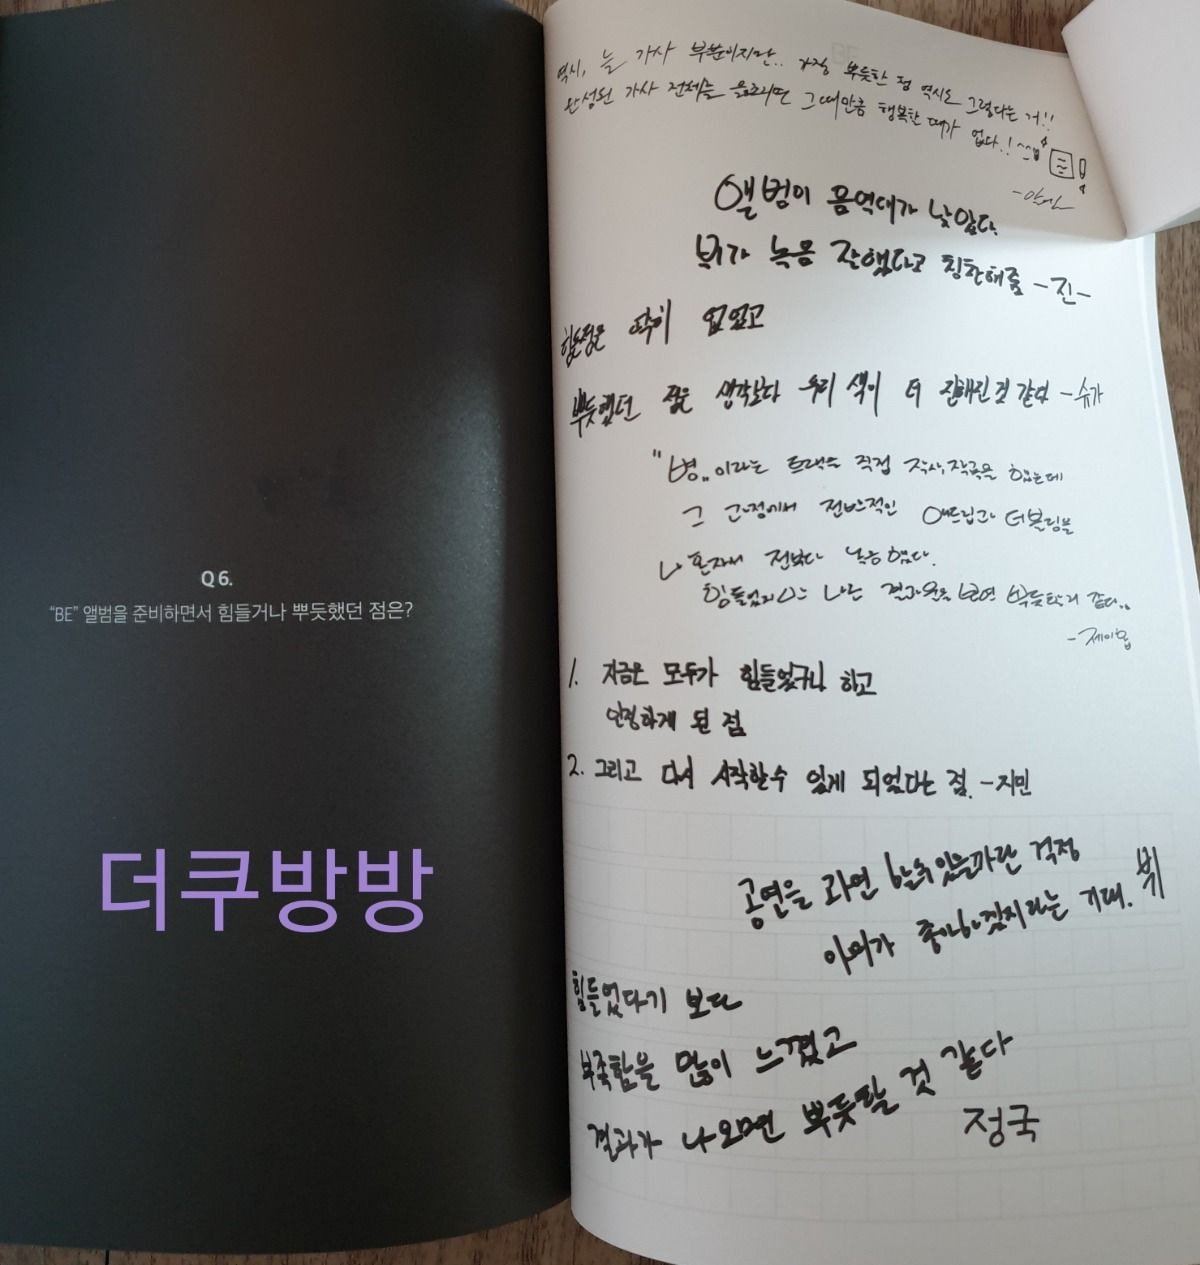 Q 6.
“BE” 앨범을 준비하면서 힘들거나 뿌듯했던 점은?
더쿠방방
역시, 늘 가사 부분이지만.. 가장 뿌듯한 점 역시도 그렇다는 거!!
완성된 가사 전체를 읊조리면 그 때만큼 행복한 때가 없다..! ^^
앨범이 음역대가 낮았다.
뷔가 녹음 잘했다고 칭찬해줌 -진-
힘든점은 딱히 없었고
뿌듯했던 점은 생각보다 우리 색이 더 진해진 것 같다 -슈가
"병" 이라는 트랙을 직접 작사,작곡을 했는데
그 과정에서 전반적인 애드립과 더블링을
혼자서 전부다 녹음 했다.
힘들었지만 나온 결과물을 보면 뿌듯하기 좋다..
-제이홉
1. 지금은 모두가 힘들었구나 하고
인정하게 된 점
2. 그리고 다시 시작할수 있게 되었다는 점. -지민
공연을 과연 할수있을까란 걱정
아미가 좋아하겠지라는 기대. 뷔
힘들었다기 보다
부족함을 많이 느꼈고
결과가 나오면 뿌듯할 것 같다
정국